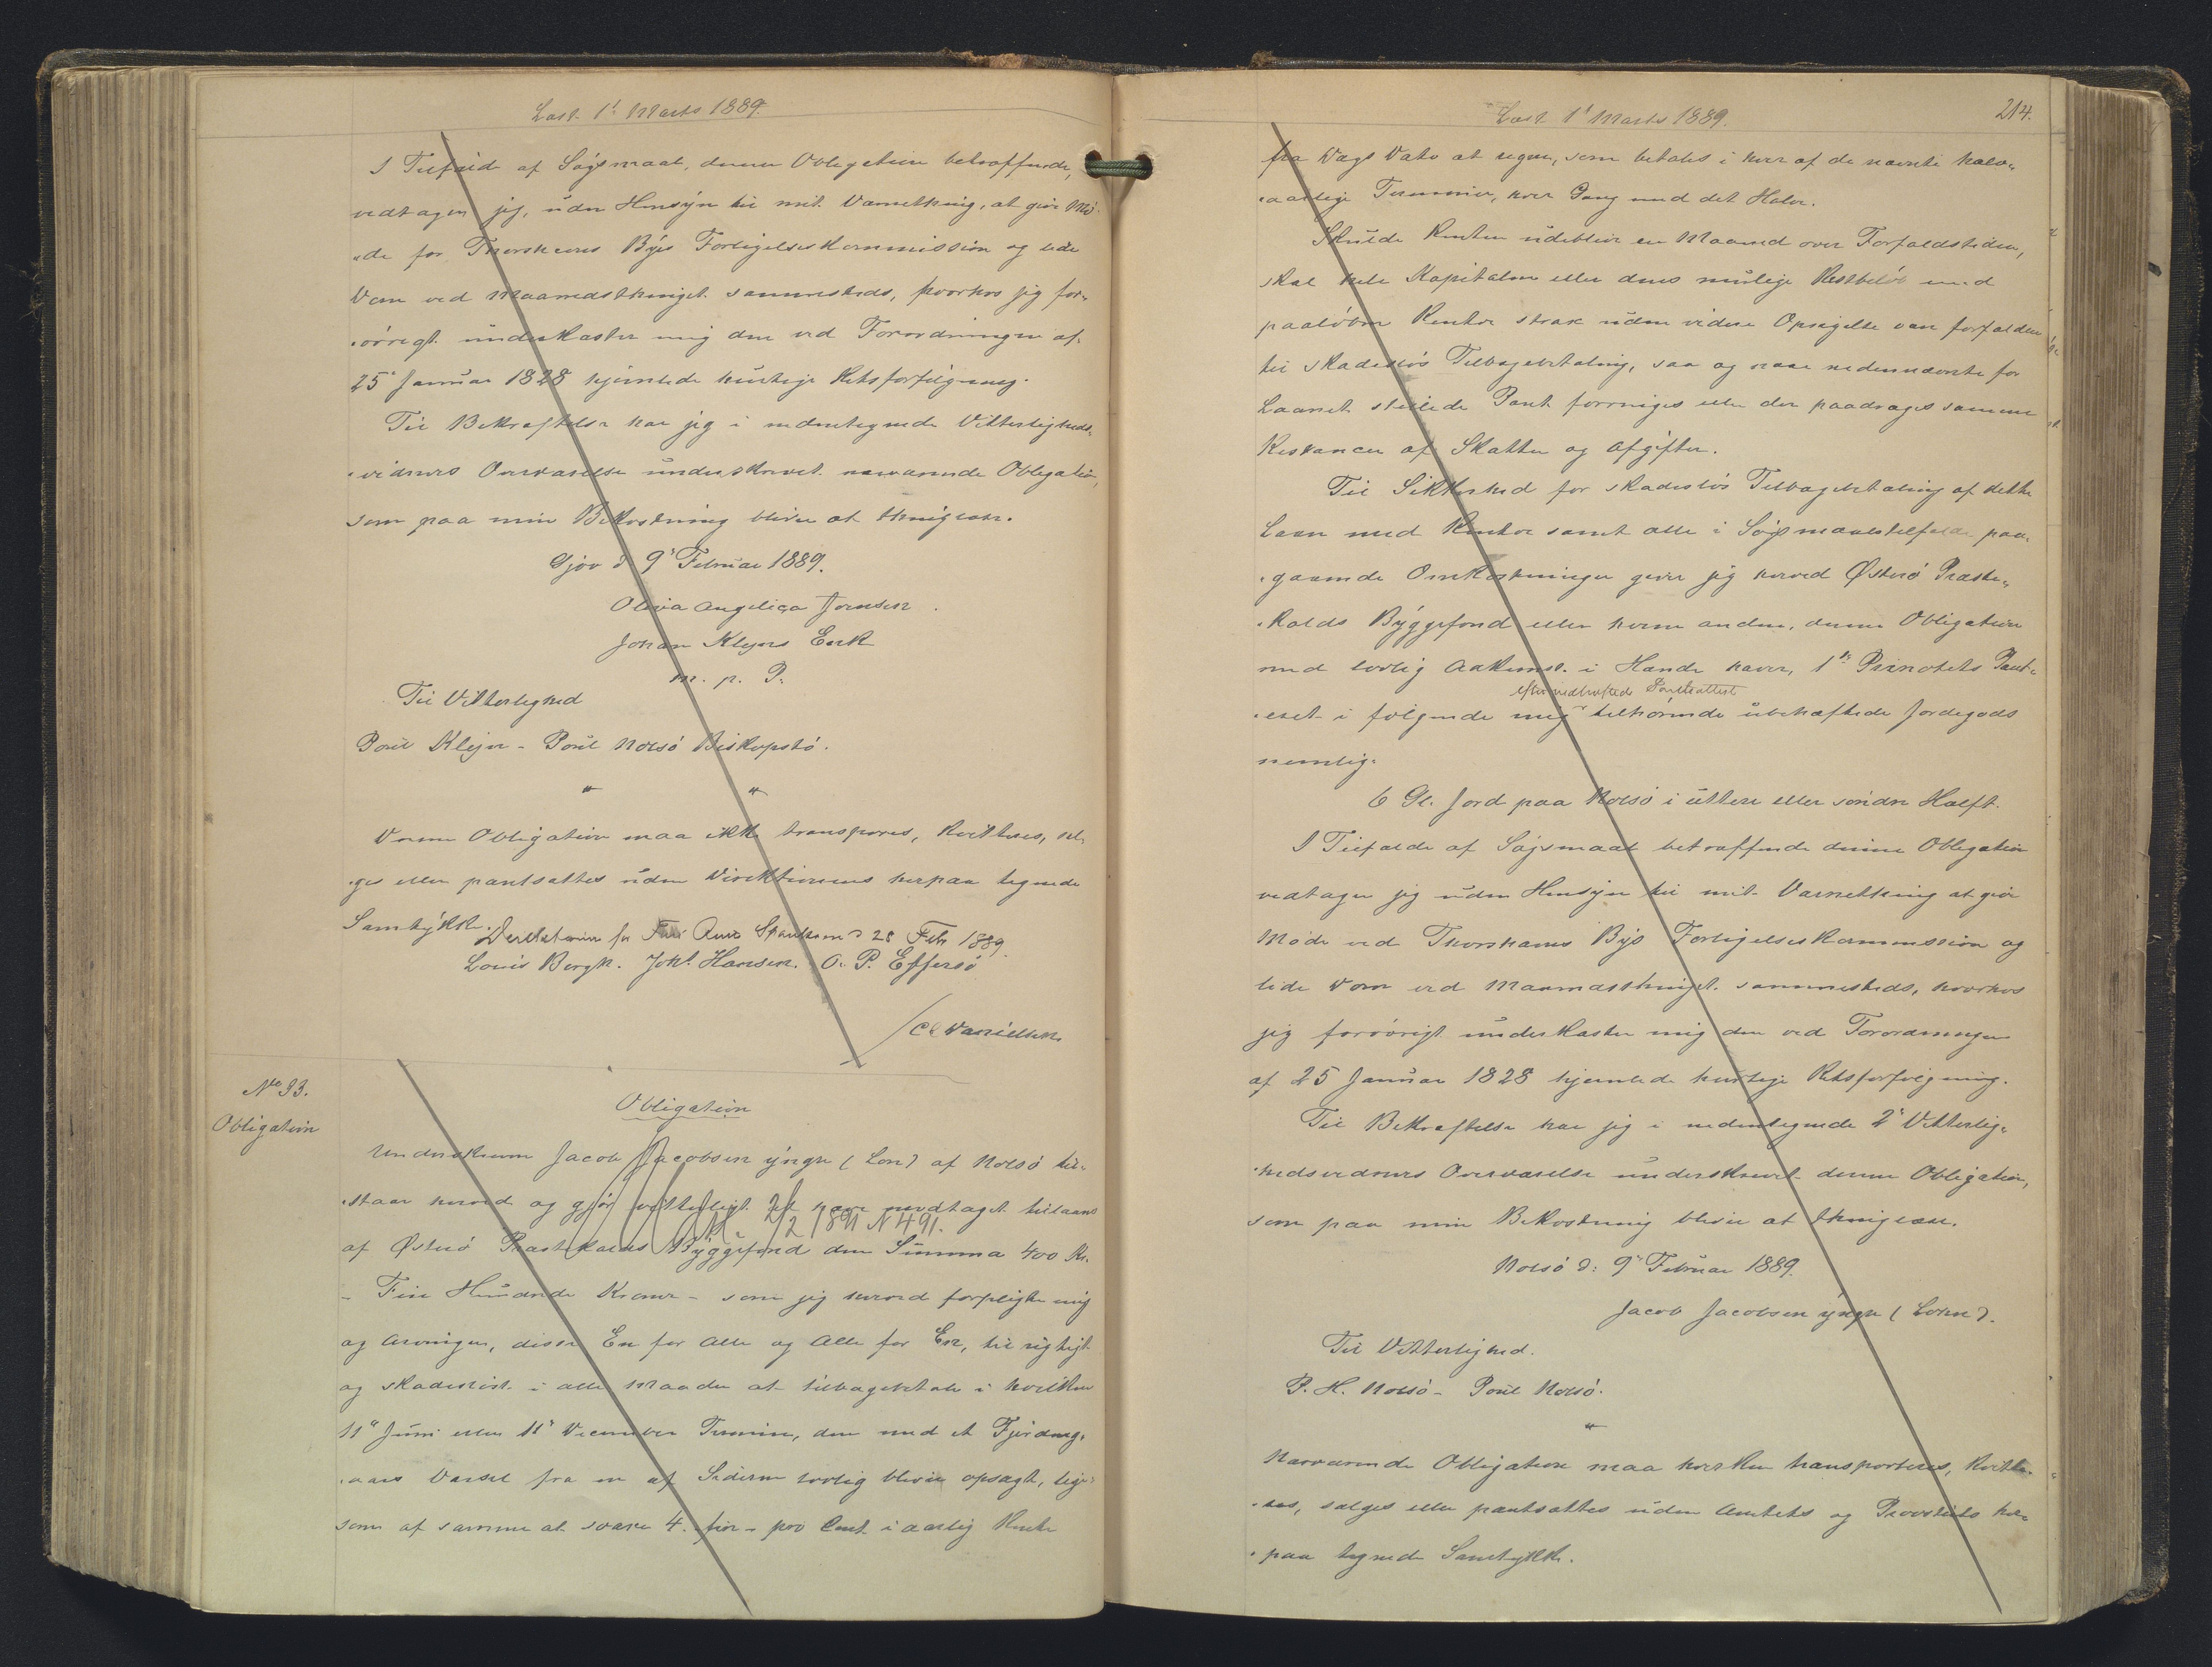 Læst 1' Marts 1889.
I Tilfælde af Søgsmaal, denne Obligation betræffende,
vedtager jeg, uden Hensyn til mit Værnething, at give Mø-
-de for Thorshavns Byes Forligelseskommission og lide
Dom ved Maanedsthinget sammesteds, hvorhos jeg for-
-øvrigt underkaster mig den ved Forordningen af
25' Januar 1828 hjemlede hurtige Retsforfølgning.
Til Bekræftelse har jeg i nedentegnede Vitterligheds-
-vidners Overværelse underskrevet nærværende Obligation,
som paa min Bekostning bliver at thinglæse.
Gjov d 9' Februar 1889.
Olivia Angelica Joensen.
Johan Klejns Enke
m. p. P.
Til Vitterlighed
Poul Klejn - Poul Nolsø Biskopstø.
" "
Denne Obligation maa ikke transporteres, kvitteres, sæl-
-ges eller pantsættes uden Direktionens herpaa tegnede
Samtykke. Direktionen for Færø Amts Sparekasse d 28 Feb 1889.
Louis Bergh. Johs Hansen. O. P. Effersø
/ C. Danielsen
No 93.
Obligation
Obligation
Underskrevne Jacob Jacobsen yngre (Lon) af Nolsø til-
-staar herved og gjør vitterligt at have modtaget tillaans
Al 2/2 1891 N 491.
af Østerø Præstekalds Byggefond den Summa 400 Kr.
- Fire Hundrede Kroner - som jeg herved forpligter mig
og Arvinger, disse En for Alle og Alle for En, til rigtigt
og skadesløst i alle Maader at tilbagebetale i hvilken
11' Juni eller 11' December Termin, den med et Fjerding-
-aars Varsel fra en af Siderne lovlig bliver opsagt, lige-
som af samme at svare 4. - fire - pro Cent i aarlig Rente
Læst 1' Marts 1889.
214.
fra Dags Dato at regne, som betales i hver af de nævnte halv-
-aarlige Terminer, hver Gang med det Halve.
Skulde Renten udeblive en Maaned over Forfaldstiden,
skal hele Kapitalen eller dens mulige Restbeløb med
paaløbne Renter strax uden videre Opsigelse være forfalden
til skadesløs Tilbagebetaling, saa og naar nedennævnte for
Laanet stillede Pant forringes eller der paadrages samme
Restancer af Skatter og Afgifter.
Til Sikkerhed for skadesløs Tilbagebetaling af dette
Laan med Renter samt alle i Søgsmaalstilfælde paa-
-gaaende Omkostninger giver jeg herved Østerø Præste-
-kalds Byggefond eller hvem anden, denne Obligation
med lovlig Adkomst i Hænde haver, 1ste Prioritets Pant-
efter vedhæftede Panteattest
-eret i følgende mig tilhørende ubehæftede Jordegods
nemlig:
6 Gl. Jord paa Nolsø i uttere eller søndre Hælft.
I Tilfælde af Søgsmaal betræffende denne Obligation
vedtager jeg uden Hensyn til mit Værnething at give
Møde ved Thorshavns Bys Forligelseskommission og
lide Dom ved Maanedsthinget sammesteds, hvorhos
jeg forøvrigt underkaster mig den ved Forordningen
af 25 Januar 1828 hjemlede hurtige Retsforfølgning.
Til Bekræftelse har jeg i nedentegnede 2' Vitterlig-
-hedsvidners Overværelse underskrevet denne Obligation,
som paa min Bekostning bliver at thinglæse.
Nolsø d: 9' Februar 1889.
Jacob Jacobsen yngre (Lorn).
Til Vitterlighed.
P. H. Nolsø - Poul Nolsø.
"
Nærværende Obligation maa hverken transporteres, kvitte-
-res, sælges eller pantsættes uden Amtets og Provstiets her-
-paa tegnede Samtykke.